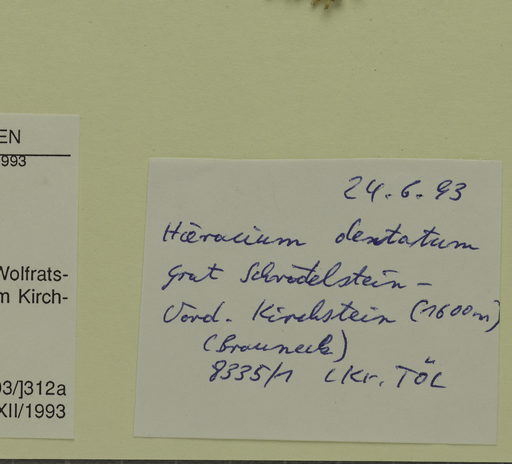 EN
1993
Wolfrats-
m Kirch-
93/]312a
XII/1993
24.6.93
Hieracium dentatum
Grat Schrödelstein -
Vord. Kirchstein (1600m)
(Brauneck)
8335/1 LKr. TÖL